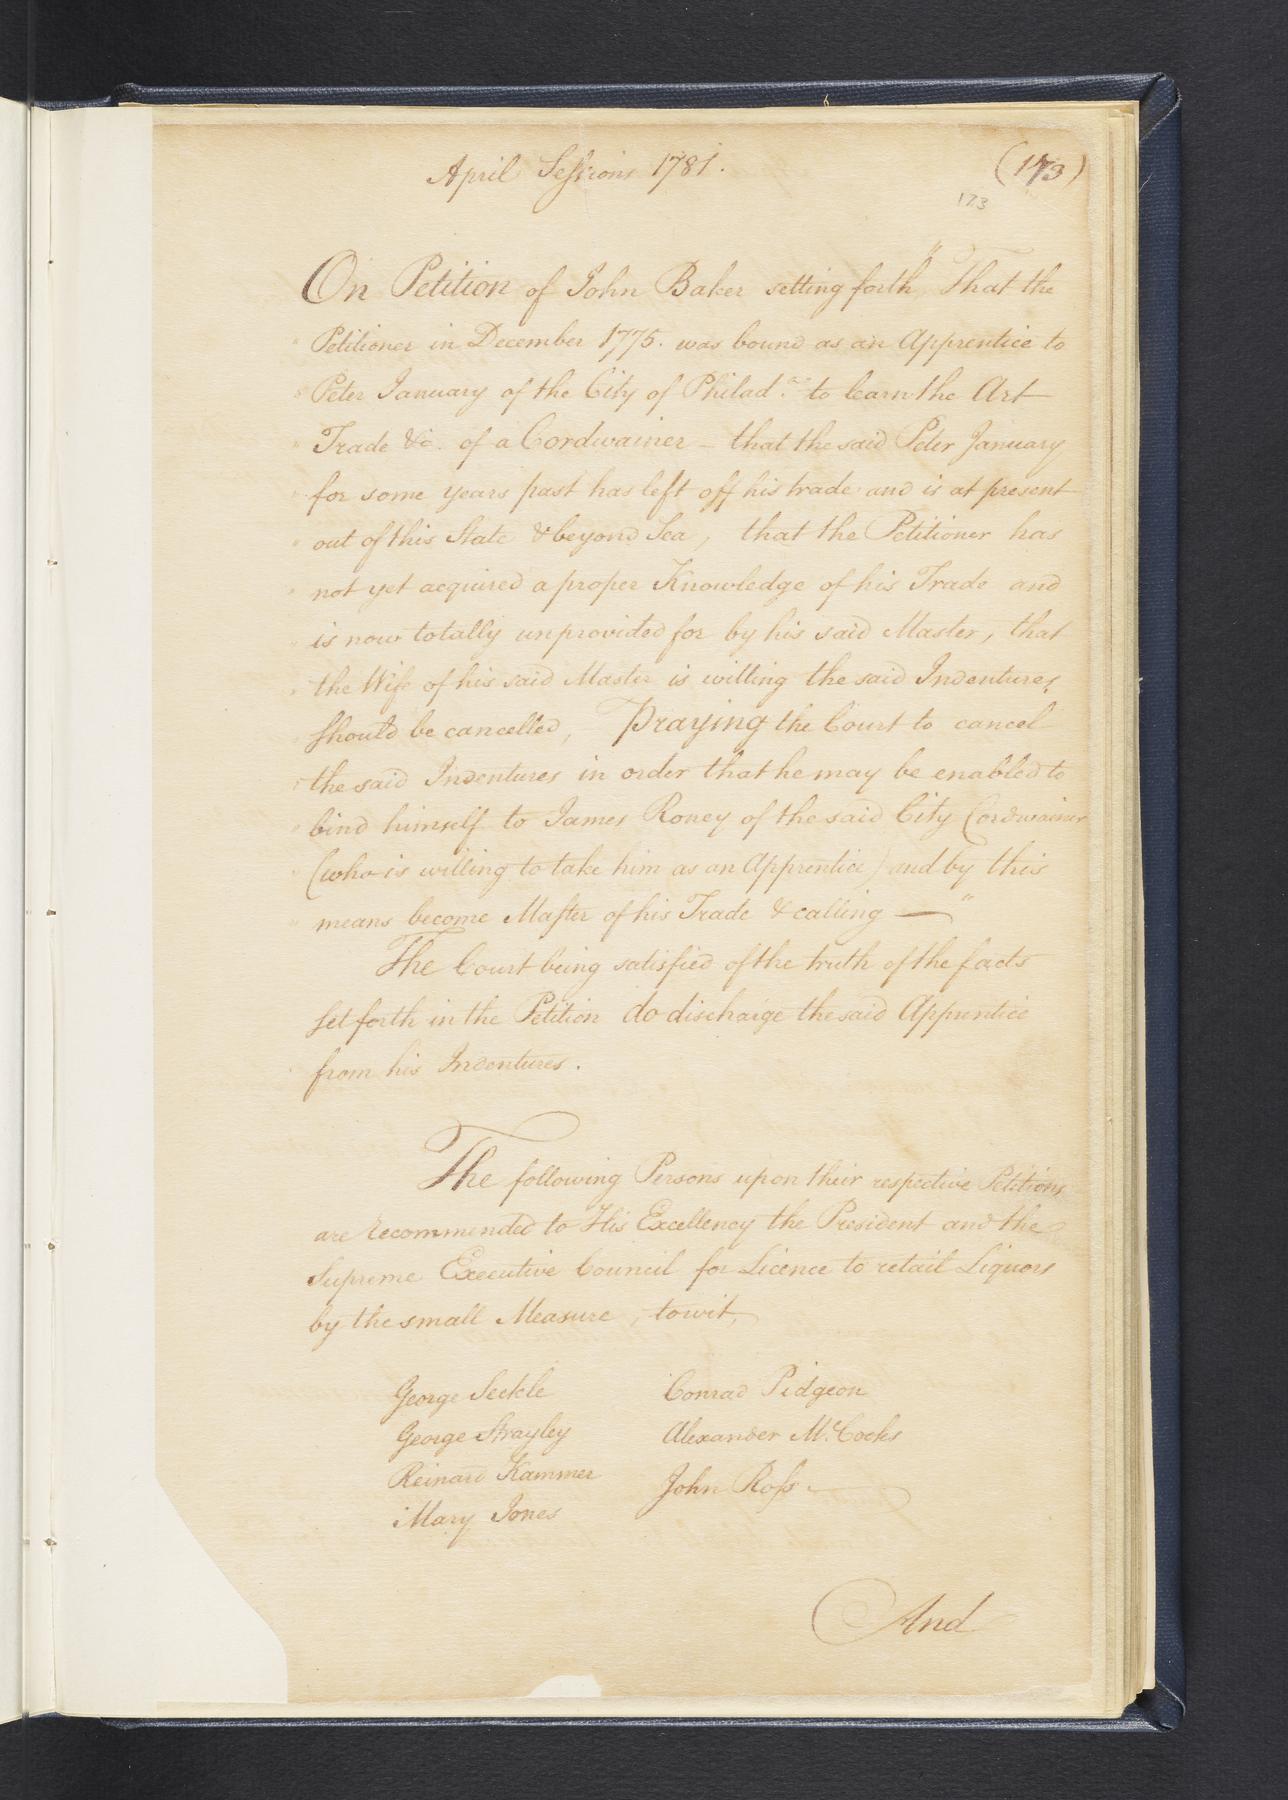 April Sessions 1781.
(173)
173
On Petition of John Baker setting forth "That the
" Petitioner in December 1775. was bound as an Apprentice to
" Peter January of the City of Philad.a to learn the Art
" Trade &c. of a Cordwainer – that the said Peter January
" for some years past has left off his trade and is at present
" out of this State & beyond Sea, that the Petitioner has
" not yet acquired a proper Knowledge of his Trade and
" is now totally unprovided for by his said Master, that
" the Wife of his said Master is willing the said Indentures
" should be cancelled, Praying the Court to cancel
" the said Indentures in order that he may be enabled to
" bind himself to James Roney of the said City Cordwainer
" (who is willing to take him as an Apprentice) and by this
" means become Master of his Trade & calling —"
The Court being satisfied of the truth of the facts
set forth in the Petition do discharge the said Apprentice
from his Indentures.
The following Persons upon their respective Petitions
are recommended to His Excellency the President and the
Supreme Executive Council for Licence to retail Liquors
by the small Measure, towit,
George Seckle Conrad Pidgeon
George Strayley Alexander McCocks
Reinard Kammer John Ross
Mary Jones
And